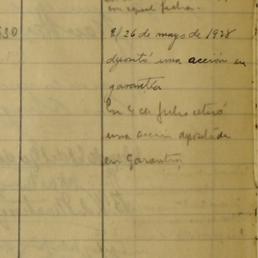 con igual fecha.
El 26 de mayo de 1928
depositó una acción en
garantía
En 4 de julio retiró
una acción depositada
en Garantía